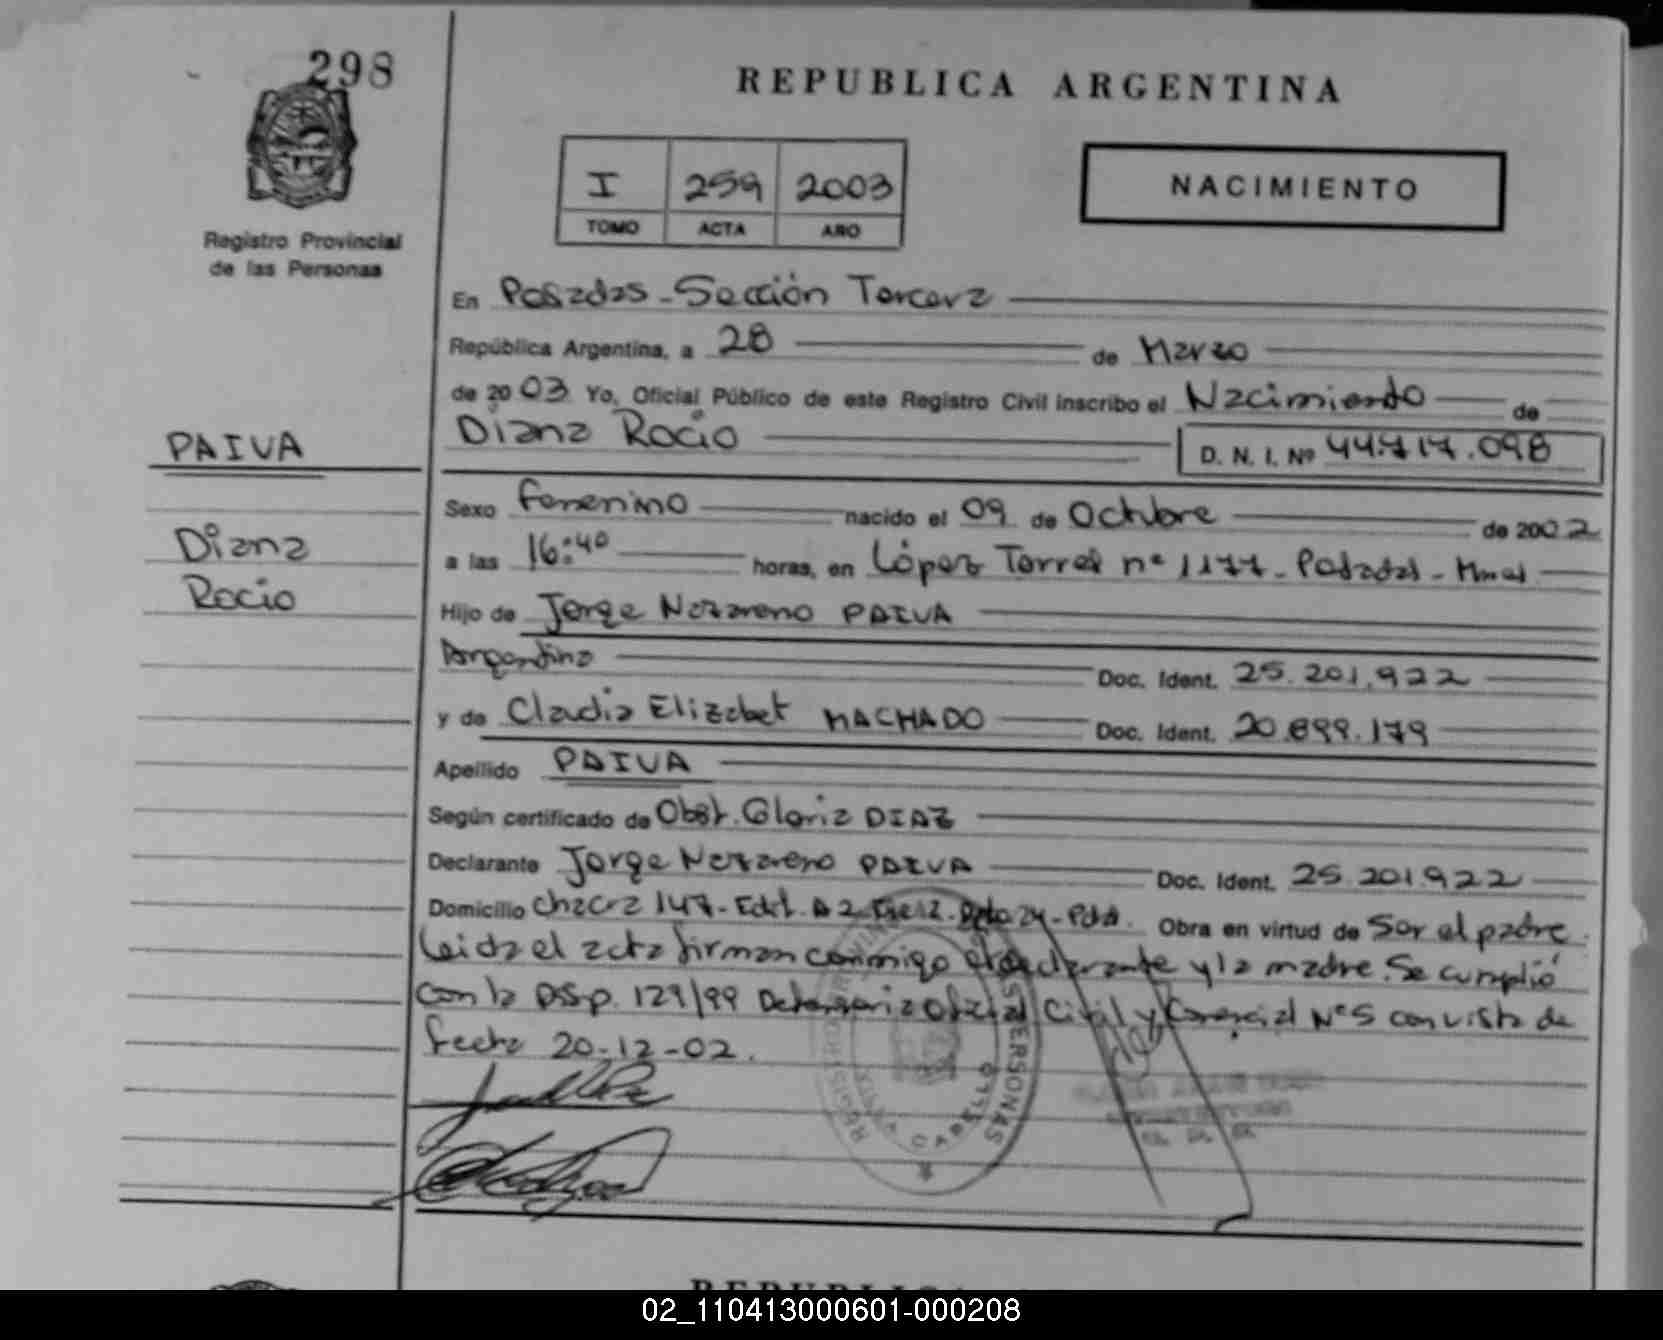 298
REPUBLICA ARGENTINA
I 259 2003
TOMO ACTA AÑO
NACIMIENTO
Registro Provincial
de las Personas
En Posadas - Sección Tercera
República Argentina, a 28 de Marzo
de 2003 Yo, Oficial Público de este Registro Civil inscribo el Nacimiento de
Diana Rocio D. N. I. Nº 44.717.098
PAIVA
Diana
Rocio
Sexo femenino nacido el 09 de Octubre de 2002
a las 16:40 horas, en López Torres nº 1177 - Posadas - Mnes
Hijo de Jorge Nazareno PAIVA
Argentina Doc. Ident. 25.201.922
y de Claudia Elizabet MACHADO Doc. Ident. 20.899.179
Apellido PAIVA
Según certificado de Obst. Gloria DIAZ
Declarante Jorge Nazareno PAIVA Doc. Ident. 25.201.922
Domicilio Chacra 147 - Edif. A2 Dpto 24 - Pdas. Obra en virtud de Ser el padre.
Leida el acta firman conmigo el declarante y la madre. Se cumplió
con la Disp. 129/99 Defensoria Oficial Civil y Comercial Nº 5 con vista de
fecha 20-12-02.
REGISTRO PROVINCIAL DE LAS PERSONAS
CABELLO
REPUBLICA
02_110413000601-000208